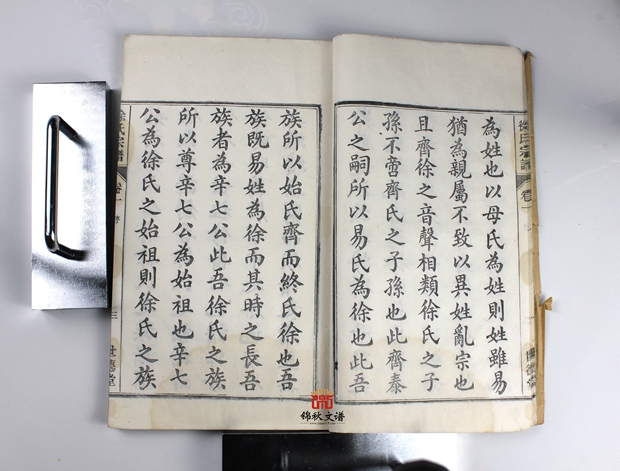 為姓也以母氏為姓則姓雖易
猶為親屬不致以異姓亂宗也
且齊徐之音聲相類徐氏之子
孫不啻齊氏之子孫也此齊泰
公之嗣所以易氏為徐也此吾
族所以始氏齊而終氏徐也吾
族既易姓為徐而其時之長吾
族者為辛七公此吾徐氏之族
所以尊辛七公為始祖也辛七
公為徐氏之始祖則徐氏之族
徐氏宗譜
卷一
序
三
世德堂
徐氏宗譜
卷一
錦秋文谱